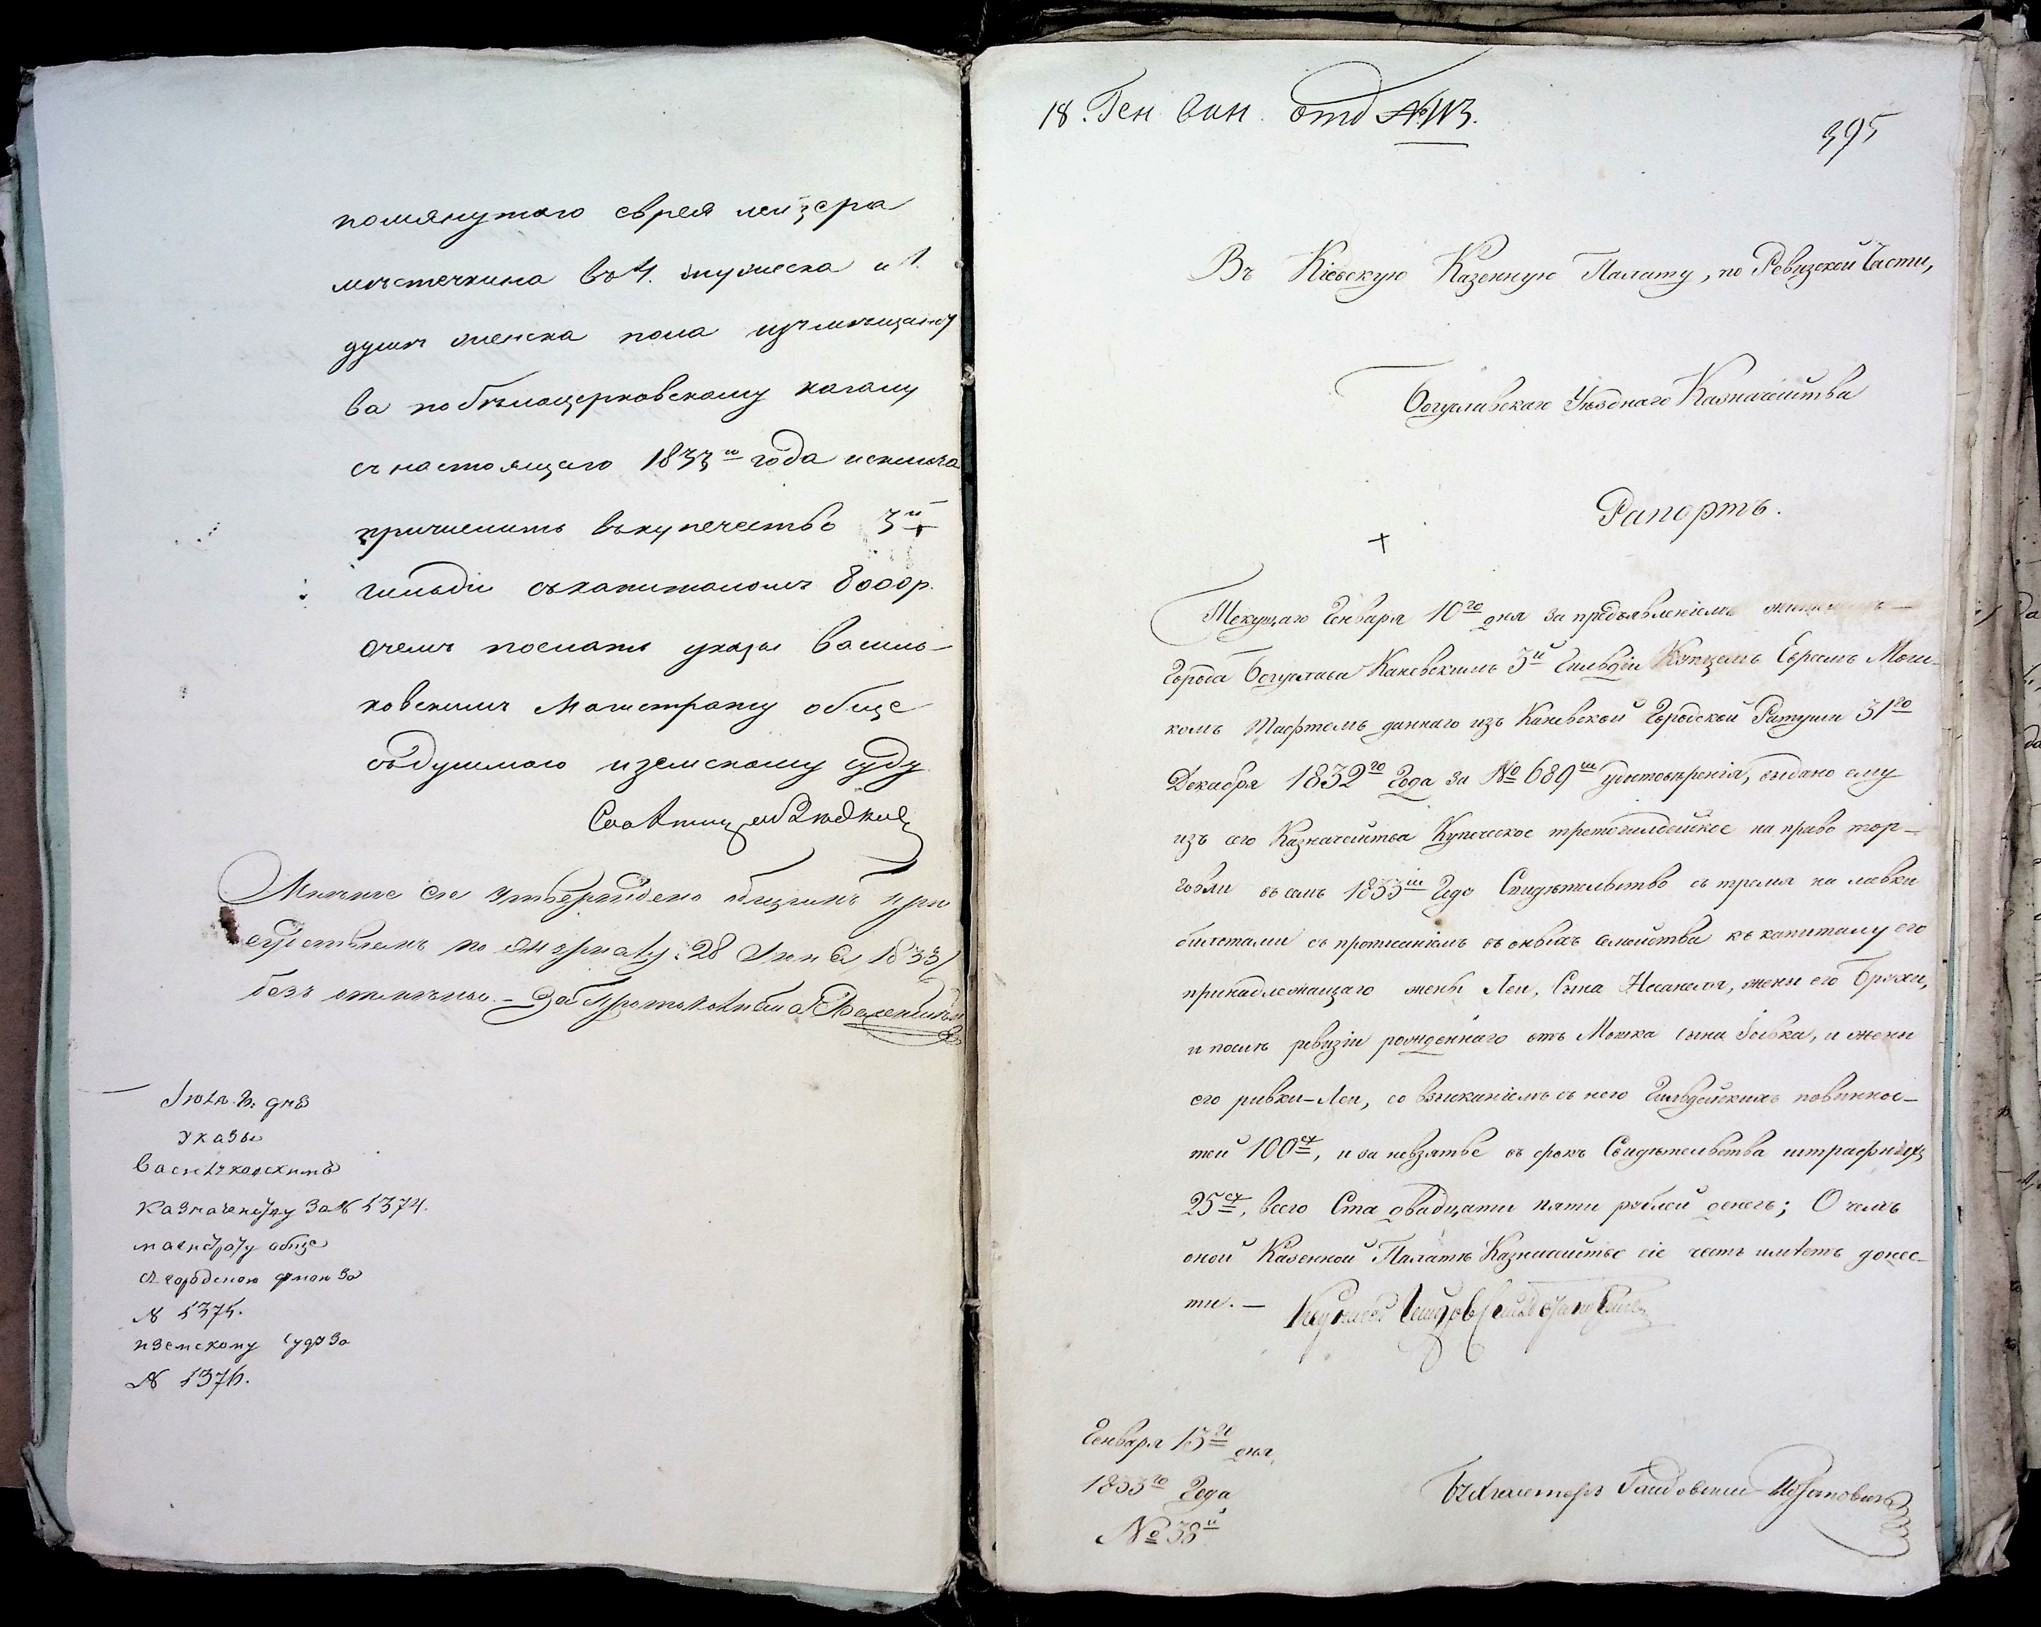 помянутого еврея лейзера
мѣстечкина въ 4. мужеска и 1.
душѣ женска пола изъ мѣщанст
ва по бѣлоцерковскому кагалу
съ настоящаго 1833го года исключа
причислить въ купечество 3й
гильдіи съ капиталомъ 8000 р.
о чемъ послать указы василь-
ковскимъ Магистрату обще
съ думою и земскому суду
Мнѣніе сіе утверждено общимъ при
сутствіемъ по журналу: 28 Іюня 1833
безъ отмѣны. – За Протоколиста
Іюля 2. дня
указы
Васильковскимъ
Казначейству за № 1374.
магистрату обще
съ городскою думою за
№ 1375.
и земскому суду за
№ 1376.
18. Ген отд № 113.
395
Въ Кіевскую Казенную Палату, по Ревизской Части,
Богуславскаго Уѣзднаго Казначейства
Рапортъ.
Текущаго Генваря 10го дня за предъявленіемъ
Города Богуслава Каневскимъ 3й Гильдіи Купцемъ Евреемъ Мош-
комъ Тафтемъ даннаго изъ Каневской Городской Ратуши 31го
Декабря 1832го Года за № 689м удостовѣренія, выдано ему
изъ сего Казначейства Купеческое третогильдейское на право тор-
говли въ семъ 1833м Году Свидѣтельство съ тремя на лавки
билетами съ прописаніемъ въ оныхъ семейства къ капиталу его
принадлежащаго жены Леи, Сына жены его Брохи,
и послѣ ревизіи рожденнаго отъ Мошка сына и жены
его ривки-Леи, со взысканіемъ съ него Гильдейскихъ повиннос-
тей 100 ст, и за невзятье въ срокъ Свидѣтельства штрафныхъ
25 ст, Всего Ста двадцати пяти рублей денегъ; О чемъ
оной Казенной Палатѣ Казначейство сіе честь имѣетъ донес-
ти. –
Генваря 13го дня,
1833го Года
№ 38й
Бухгалтеръ